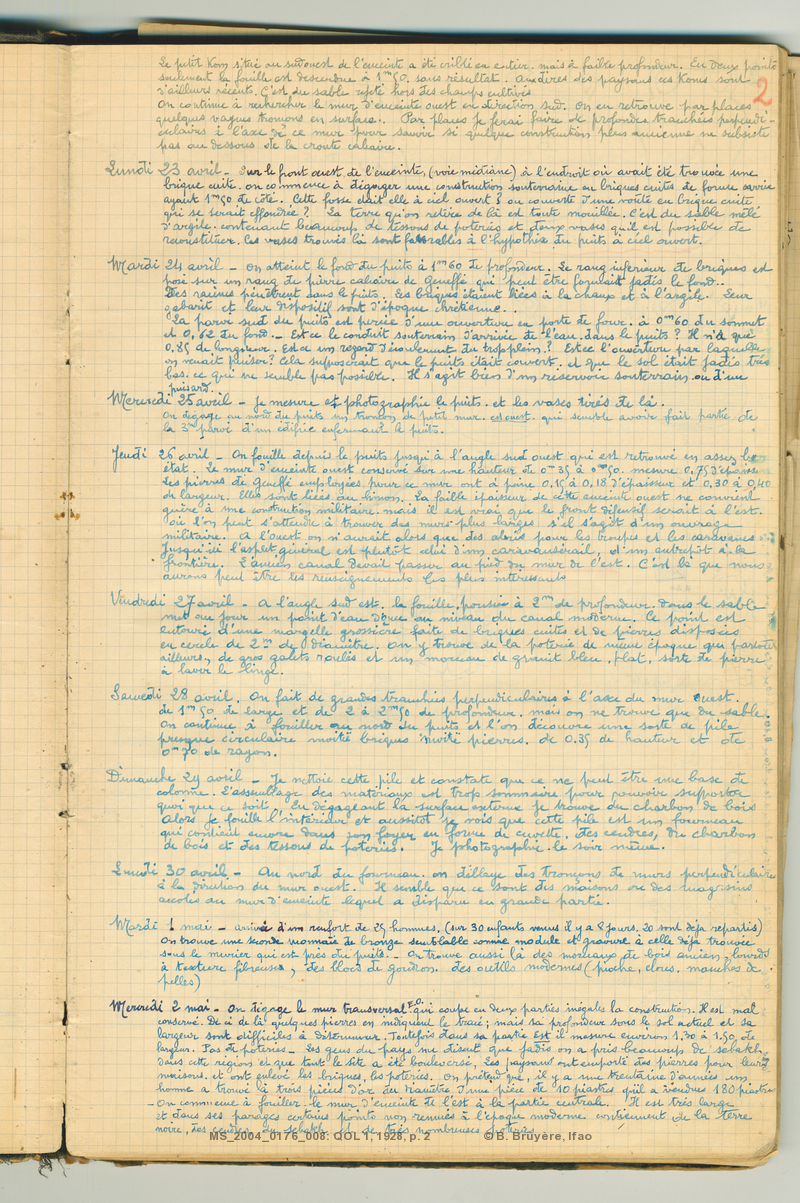 Le petit Kom situé au sud ouest de l'enceinte a été criblé en entier. mais à faible profondeur. En deux points
seulement la fouille est descendue à 1m50, sans résultat. Aux dires des paysans ces Koms sont
d'ailleurs récents. C'est du sable rejeté hors des champs cultivés
2
On continue à rechercher le mur d'enceinte ouest en direction sud. On en retrouve par places
quelques vagues tronçons en surface. Par places je ferai faire de profondes tranchées perpendi-
culaires à l'axe de ce mur pour savoir si quelque construction plus ancienne ne subsiste
pas au dessous de la croute calcaire.
Lundi 23 avril - Sur le front ouest de l'enceinte, (voie médiane) à l'endroit où avait été trouvée une
brique cuite. on commence à dégager une construction souterraine en briques cuites de forme carrée
ayant 1m50 de côté. Cette fosse était elle à ciel ouvert ? ou couverte d'une voûte en brique cuite
qui se serait effondrée ? La terre qu'on retire de là est toute mouillée. C'est du sable mêlé
d'argile. contenant beaucoup de tessons de poteries et deux vases qu'il est possible de
reconstituer. Ces vases trouvés là sont favorables à l'hypothèse du puits à ciel ouvert.
Mardi 24 avril - On atteint le fond du puits à 1m60 de profondeur. Le rang inférieur de briques est
posé sur un rang de pierre calcaire de Geneffé qui peut être formait jadis le fond..
Des racines pénètrent dans le puits. Les briques étaient liées à la chaux et à l'argile. Leur
gabarit et leur dispositif sont d'époque chrétienne..
La paroi sud du puits est percée d'une ouverture en porte de four. à 0m60 du sommet
et 0,62 du fond. - Est ce le conduit souterrain d'arrivée de l'eau dans le puits ? Il n'a que
0,85 de longueur. Est ce un regard d'écoulement du trop plein ? Est ce l'ouverture par laquelle
on venait puiser ? Cela supposerait que le puits était couvert. et que le sol était jadis très
bas. ce qui ne semble pas possible. Il s'agit bien d'un réservoir souterrain ou d'un
puisard.
Mercredi 25 avril - Je mesure et photographie le puits. et les vases tirés de là.
On dégage au nord du puits un tronçon de petit mur. est ouest. qui semble avoir fait partie de
la 3e paroi d'un édifice enfermant le puits.
Jeudi 26 avril - On fouille depuis le puits jusqu'à l'angle sud ouest qui est retrouvé en assez bon
état. Le mur d'enceinte ouest conservé sur une hauteur de 0m35 à 0m50. mesure 0,75 d'épaisseur
Les pierres de Geneffé employées pour ce mur ont à peine 0,15 à 0,18 d'épaisseur et 0,30 à 0,40
de largeur. Elles sont liées au limon. La faible épaisseur de cette enceinte ouest ne convient
guère à une construction militaire. mais il est vrai que le front défensif serait à l'est.
où l'on peut s'attendre à trouver des murs plus larges s'il s'agit d'un ouvrage
militaire. A l'ouest on n'aurait alors que des abris pour les troupes et les caravanes
Jusqu'ici l'aspect général est plutôt celui d'un caravansérail, d'un entrepôt à la
frontière. L'ancien canal devait passer au pied du mur de l'est. C'est là que nous
aurons peut être les renseignements les plus intéressants
Vendredi 27 avril - A l'angle sud est. la fouille, poussée à 2m de profondeur. dans le sable
met au jour un point d'eau douce au niveau du canal moderne. Ce point est
entouré d'une margelle grossière faite de briques cuites et de pierres disposées
en cercle de 2m de diamètre. On y trouve de la poterie de même époque que partout
ailleurs, de gros galets roulés et un morceau de granit bleu, plat, sorte de pierre
à laver le linge.
Samedi 28 avril. On fait de grandes tranchées perpendiculaires à l'axe du mur ouest.
de 1m50 de large et de 2 à 2m50 de profondeur. mais on ne trouve que du sable.
On continue à fouiller au nord du puits et l'on découvre une sorte de pile
presque circulaire moitié briques moitié pierres. de 0.35 de hauteur et de
0m70 de rayon.
Dimanche 29 avril - Je nettoie cette pile et constate que ce ne peut être une base de
colonne. L'assemblage des matériaux est trop sommaire pour pouvoir supporter
quoi que ce soit. En dégageant la surface externe je trouve du charbon de bois
Alors je fouille l'intérieur et aussitôt je vois que cette pile est un fourneau
qui contient encore dans son foyer en forme de cuvette, des cendres, du charbon
de bois et des tessons de poteries. Je photographie le soir même.
Lundi 30 avril - Au nord du fourneau. on déblaye des tronçons de murs perpendiculaires
à la direction du mur ouest. Il semble que ce sont des maisons ou des magasins
accotés au mur d'enceinte lequel a disparu en grande partie.
Mardi 1 mai - arrivée d'un renfort de 25 hommes, (sur 30 enfants venus il y a 8 jours, 20 sont déjà repartis)
On trouve une seconde monnaie de bronze semblable comme module et gravure à celle déjà trouvée
sous le murier qui est près du puits. - On trouve aussi là des morceaux de bois ancien, lourds
à texture fibreuse, des blocs de goudron. des outils modernes (pioche, clous, manches de
pelles)
Mercredi 2 mai - On dégage le mur transversal E.O. qui coupe en deux parties inégales la construction. Il est mal
conservé. De ci de là quelques pierres en indiquent le tracé ; mais sa profondeur sous le sol actuel et sa
largeur sont difficiles à déterminer. Toutefois dans sa partie est il mesure environ 1.30 à 1.50 de
largeur. Pas de poteries - Les gens du pays me disent que jadis on a pris beaucoup de sebakh
dans cette région et que tout le site a été bouleversé. Les paysans ont emporté des pierres pour leurs
maisons. et ont enlevé les briques, les poteries. On prétend que, il y a une trentaine d'années un
homme a trouvé là trois pièces d'or du diamètre d'une pièce de 10 piastres qu'il a vendues 180 piastres
- On commence à fouiller le mur d'enceinte de l'est à la partie centrale. Il est très large
et dans ses parages certains points non remués à l'époque moderne contiennent de la terre
noire, des cendres, du sebakh et de très nombreuses poteries
MS_2004_0176_008: QOL 1, 1928, p. 2 © B. Bruyère, Ifao